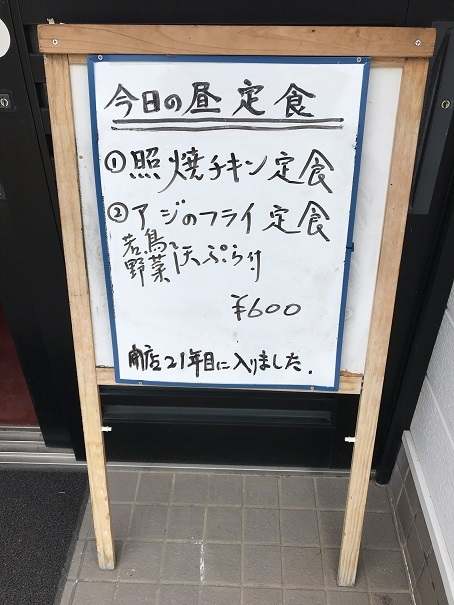 今日の昼定食
①照焼チキン定食
②アジのフライ定食
若鳥、野菜天ぷら付
¥600
開店21年目に入りました.